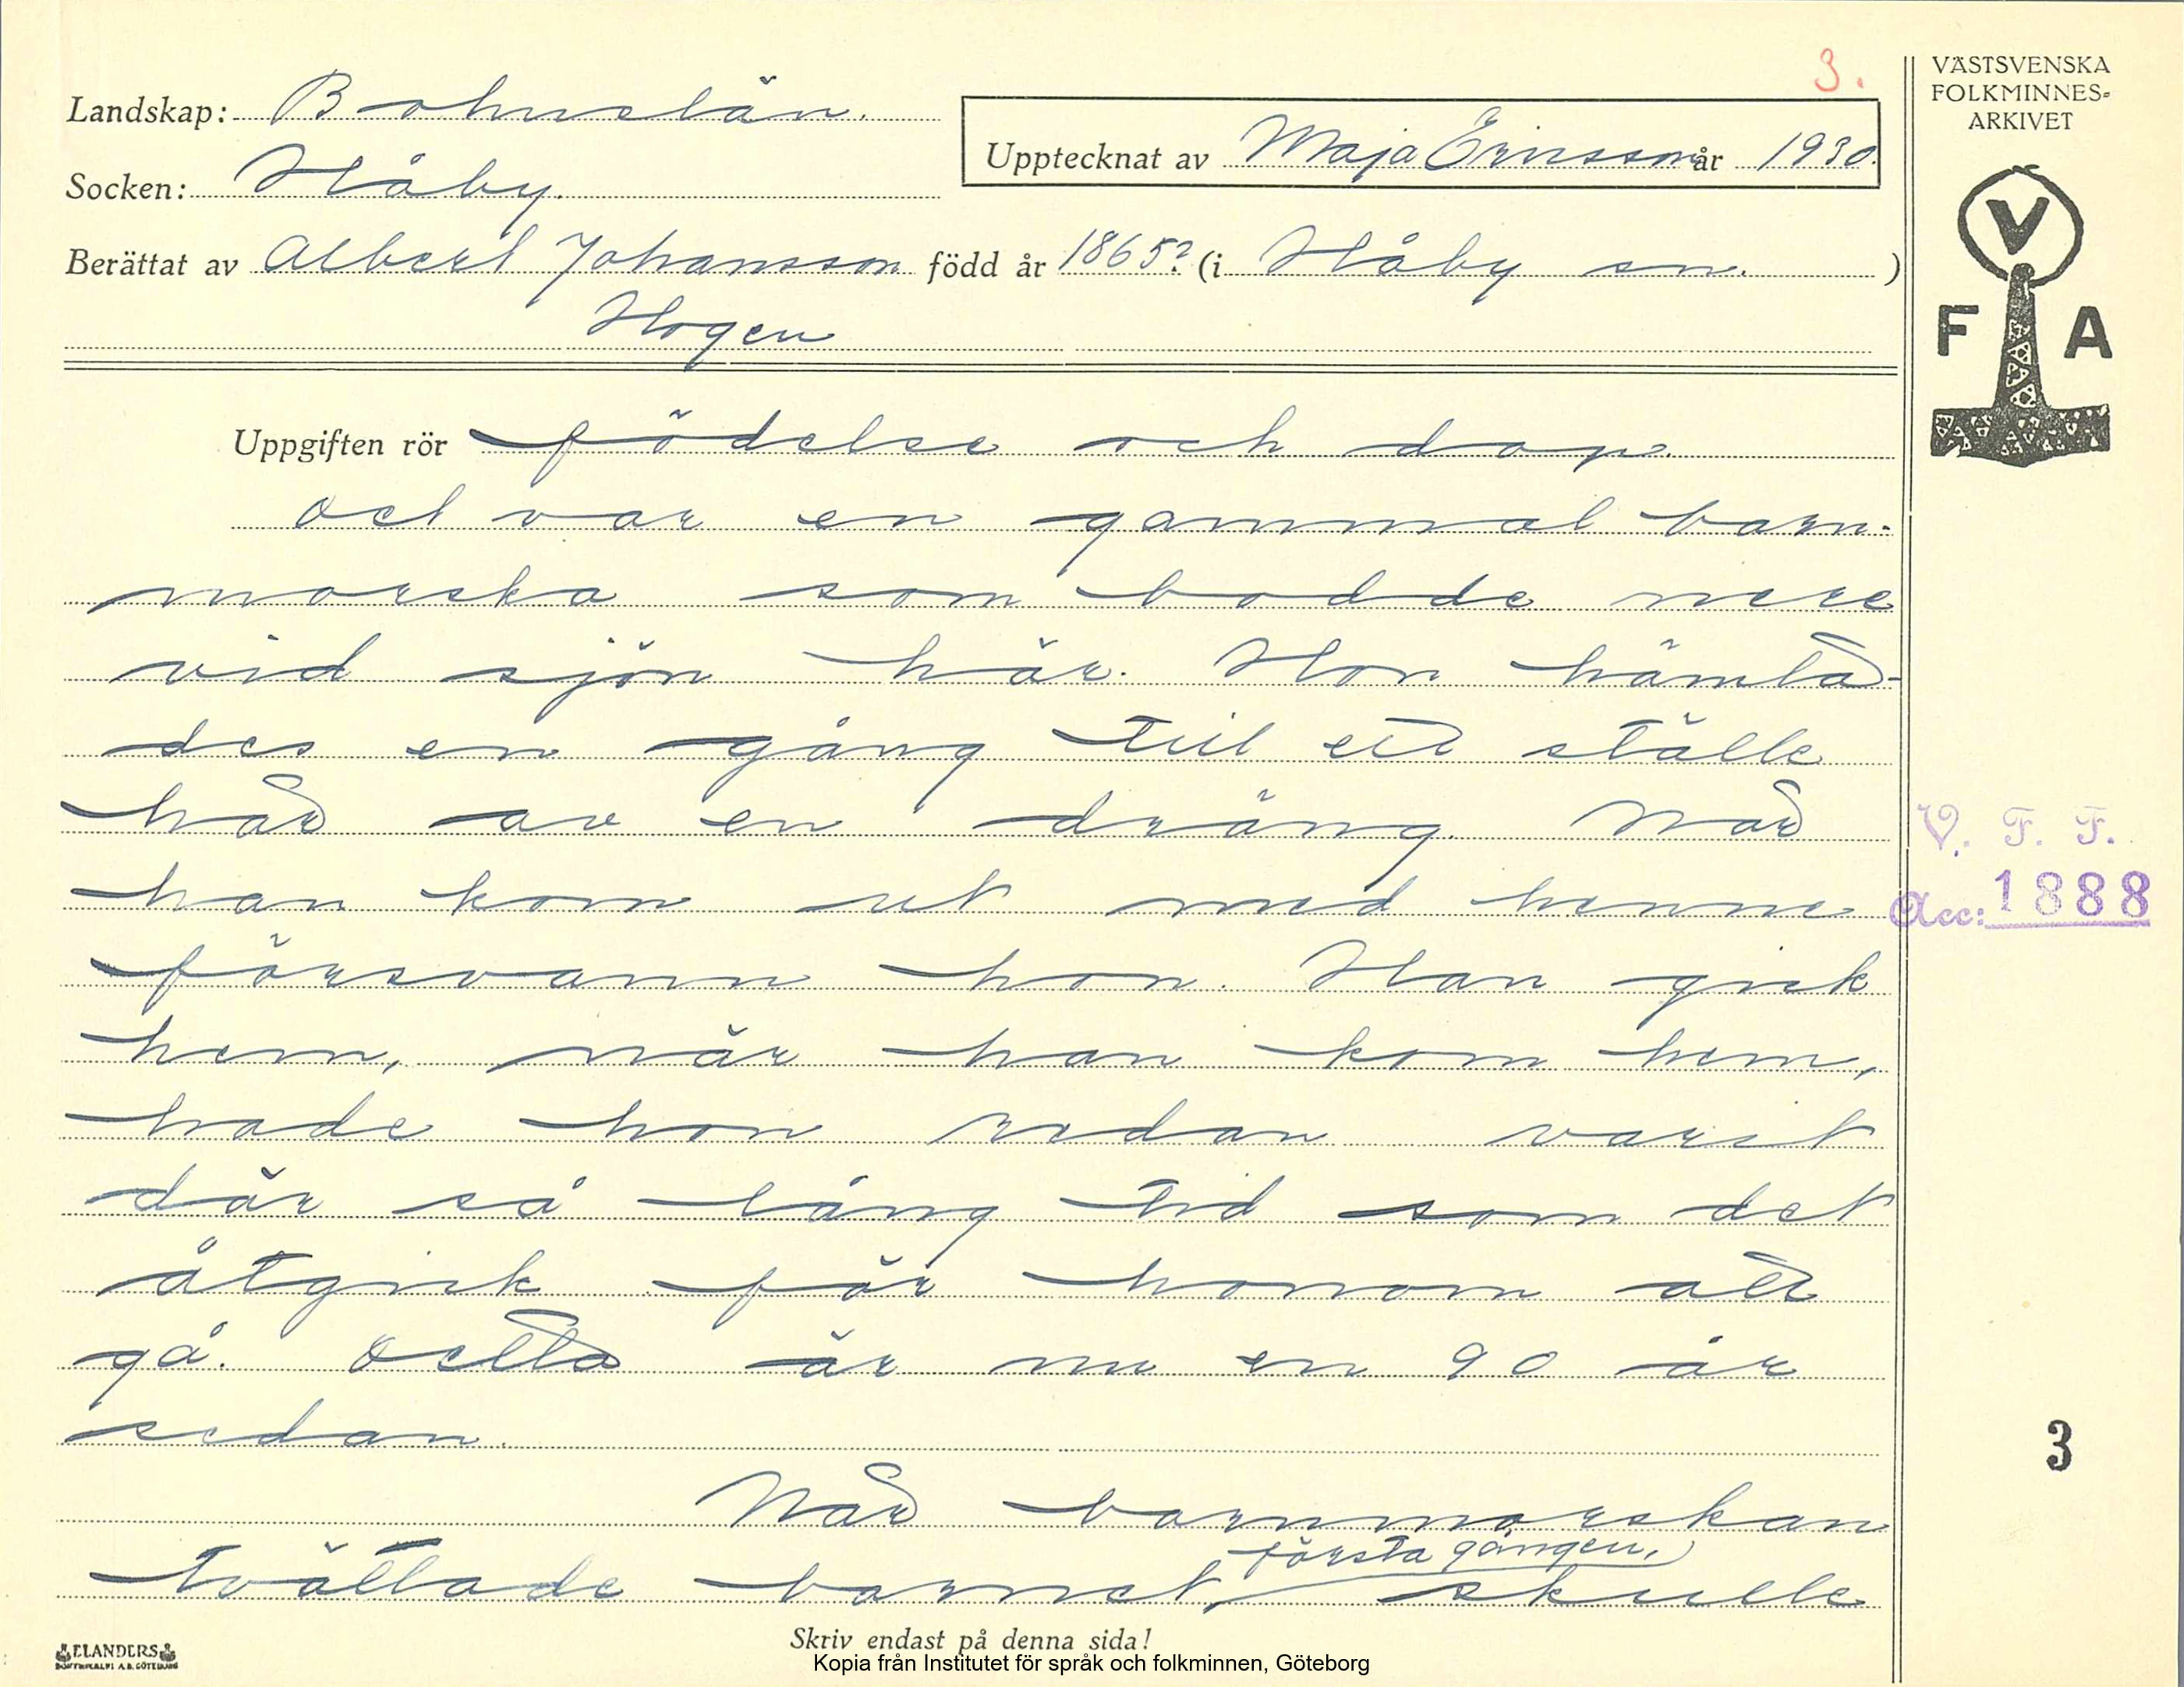 3.
VÄSTSVENSKA
FOLKMINNES-
ARKIVET
Landskap: Bohuslän.
Upptecknat av Maja Ericsson år 1930.
Socken: Håby.
Berättat av Albert Johansson född år 1865? (i Håby sn. )
Hogen
V
F A
Uppgiften rör födelse och dop.
Det var en gammal barn-
morska som bodde nere
vid sjön här. Hon hämta-
des en gång till ett ställe
här av en dräng. När
han kom ut med henne
försvann hon. Han gick
hem, när han kom hem,
hade hon redan varit
där så lång tid som det
åtgick för honom att
gå. Detta är nu en 90 år
sedan.
När barnmorskan
första gången,
tvättade barnet, skulle
V. F. F.
Acc: 1888
3
Skriv endast på denna sida!
ELANDERS
BOKTRYCKERI A.B. GÖTEBORG
Kopia från Institutet för språk och folkminnen, Göteborg